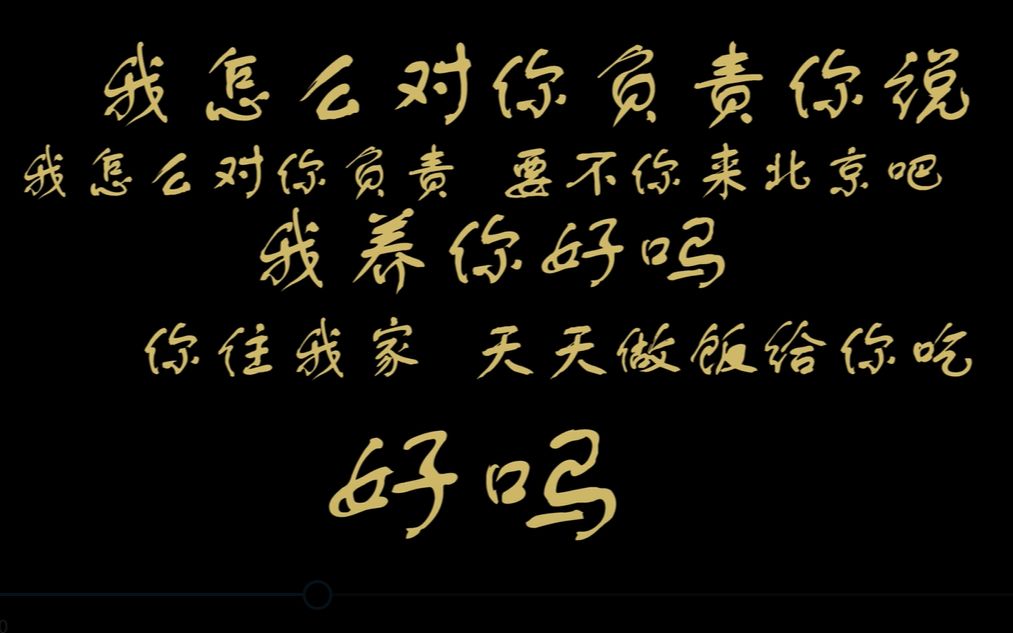 我怎么对你负责你说
我怎么对你负责 要不你来北京吧
我养你好吗
你住我家 天天做饭给你吃
好吗
0